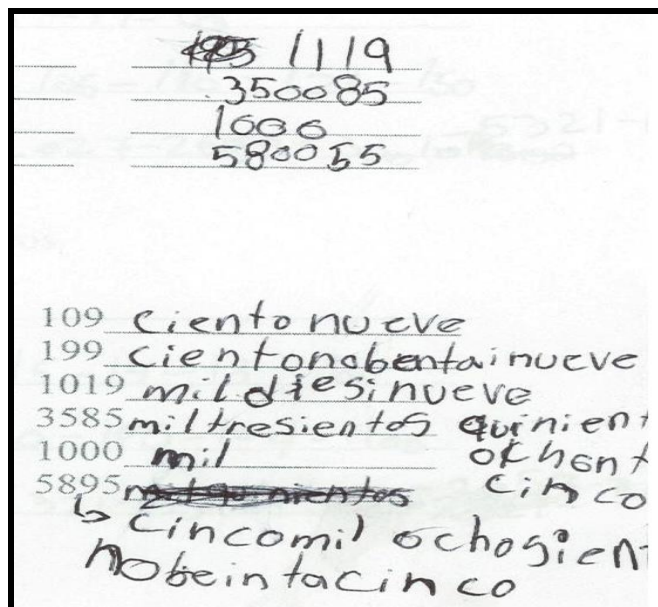 1119
350085
1000
580055
109 ciento nueve
199 cientonobentainueve
1019 mil diesinueve
3585 miltresientos quinient
1000 mil ochent
5895 cinco
cincomil ochogien
nobeintacinco